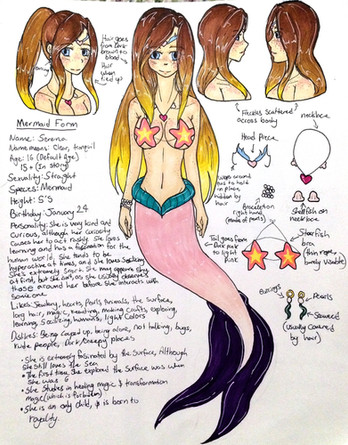 Hair goes
from dark
brown to
blond
Hair
when
tied up
Mermaid Form
Name: Serena
Name means: Clear, tranquil
Age: 16 (Default Age)
15+ (In story)
Sexuality: Straight
Species: Mermaid
Height: 5'5
Birthday: January 24
Personality: She is very kind and
curious, although her curiosity
causes her to act rashly. She loves
learning and has a fascination for the
human world. She tends to be
hyperactive at times, and she loves
She is extremely smart. She may appear shy
at first, but she isn't, as she usually observes
those around her before she interacts with
someone.
Likes: Jewelry, hearts, pearls, the surface,
long hair, magic, reading, making crafts, exploring,
learning, light colors
Dislikes: Being caged up, being alone, not talking, bugs,
rude people, Dark/creepy places
• She is extremely fascinated by the surface, although
she still loves the sea.
• The first time she explored the surface was when
she was 6
• She studies in healing magic & transformation
magic (which is forbidden)
• She is an only child, & is born to
royalty.
Freckles scattered
across body
Head Piece
necklace
wraps around
to hold in
place,
hidden by
hair
right hand
(made of pearls)
Starfish on
necklace
Tail goes from
pink to
light
pink
Starfish
bra
Thin ropes,
barely visible
Earrings
Pearls
Seaweed
(usually covered
by hair)